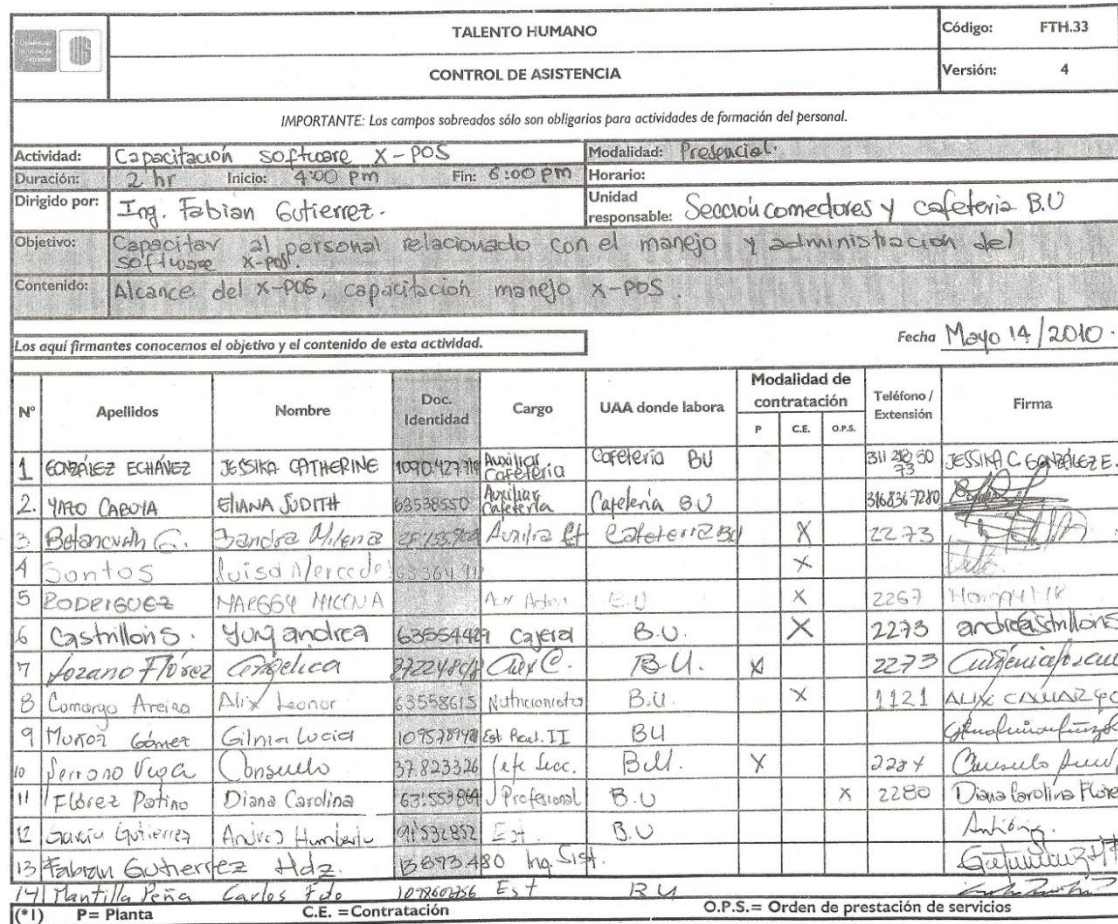 TALENTO HUMANO
Código: FTH.33
CONTROL DE ASISTENCIA
Versión: 4
IMPORTANTE: Los campos sobreados sólo son obligarios para actividades de formación del personal.
Actividad: Capacitación software X-POS Modalidad: Presencial.
Duración: 2 hr Inicio: 4:00 pm Fin: 6:00 pm Horario:
Dirigido por: Ing. Fabian Gutierrez. Unidad responsable: Sección comedores y cafeteria B.U
Objetivo: Capacitar al personal relacionado con el manejo y administración del
software x-pos.
Contenido: Alcance del X-POS, capacitacion manejo X-POS.
Los aquí firmantes conocemos el objetivo y el contenido de esta actividad.
Fecha Mayo 14/2010.
N° Apellidos Nombre Doc. Identidad Cargo UAA donde labora Modalidad de contratación P C.E. O.P.S. Teléfono / Extensión Firma
1 GONZÁLEZ ECHÁVEZ JESSIKA CATHERINE Auxiliar Cafeteria Cafeteria BU 311 210 50 73 JESSIKA C GONZÁLEZ E.
2. YARO CABOYA ELIANA JUDITH 63538550 Auxiliar Cafeteria Cafeteria BU 3168367280
3 Betancurth G. Sandra Milena Cafeteria BU X 2273
4 Santos Luisa Mercedes X
5 RODRIGUEZ MARGGY B.U X 2267
6 Castrillon S. Yury andrea 63554429 Cajera B.U. X 2273 andrea Castrillon S
7 Lozano Flórez Angelica Aux C. B.U. X 2273
8 Camargo Areiza Alix Leonor 63558615 Nutricionista B.U. X 1121 ALIX CAMARGO
9 Muñoz Gómez Gilma Lucia BU
10 Serrano Vega Consuelo 37.823326 Jefe Secc. B.U. X 2284 Consuelo
11 Flórez Patino Diana Carolina 63'553864 Profesional B.U X 2280 Diana Carolina Flore
12 Gutierrez Andres Humberto 91'532852 Est. B.U
13 Fabian Gutierrez Hdz. 13893.480 Ing. Sist.
14 Mantilla Peña Carlos Fdo Est BU
(*1) P= Planta C.E. =Contratación O.P.S.= Orden de prestación de servicios